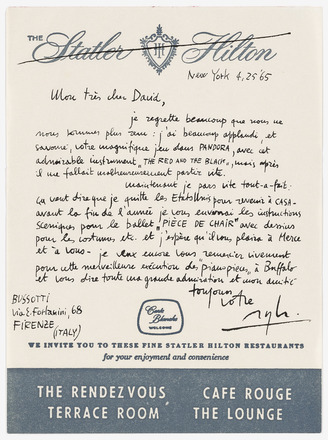 THE Statler Hilton
New York 4, 25 65
Mon très cher David,
je regrette beaucoup que nous ne
nous sommes plus vus: j'ai beaucoup applaudi et
savouré votre magnifique jeu dans PANDORA, avec cet
admirable instrument, "THE RED AND THE BLACK", mais après
il me fallait malheureusement partir vite.
maintenant je pars vite tout-à-fait:
ça veut dire que je quitte les Etats Unis pour revenir à CASA-
avant la fin de l'année je vous envoirai les instructions
sceniques pour le ballet "PIÈCE DE CHAIR" avec dessins
pour le costums, etc. et j'espère qu'il vous plaira à Merce
et à vous- je veux encore vous remercier vivement
pour cette merveilleuse exécution des "pian-pieces" à Buffalo
et vous dire toute ma grande admiration et mon amitié
toujours
votre
BUSSOTTI
via E. Fortanini, 68
FIRENZE,
(ITALY)
Carte
Blanche
WELCOME
WE INVITE YOU TO THESE FINE STATLER HILTON RESTAURANTS
for your enjoyment and convenience
THE RENDEZVOUS CAFE ROUGE
TERRACE ROOM THE LOUNGE